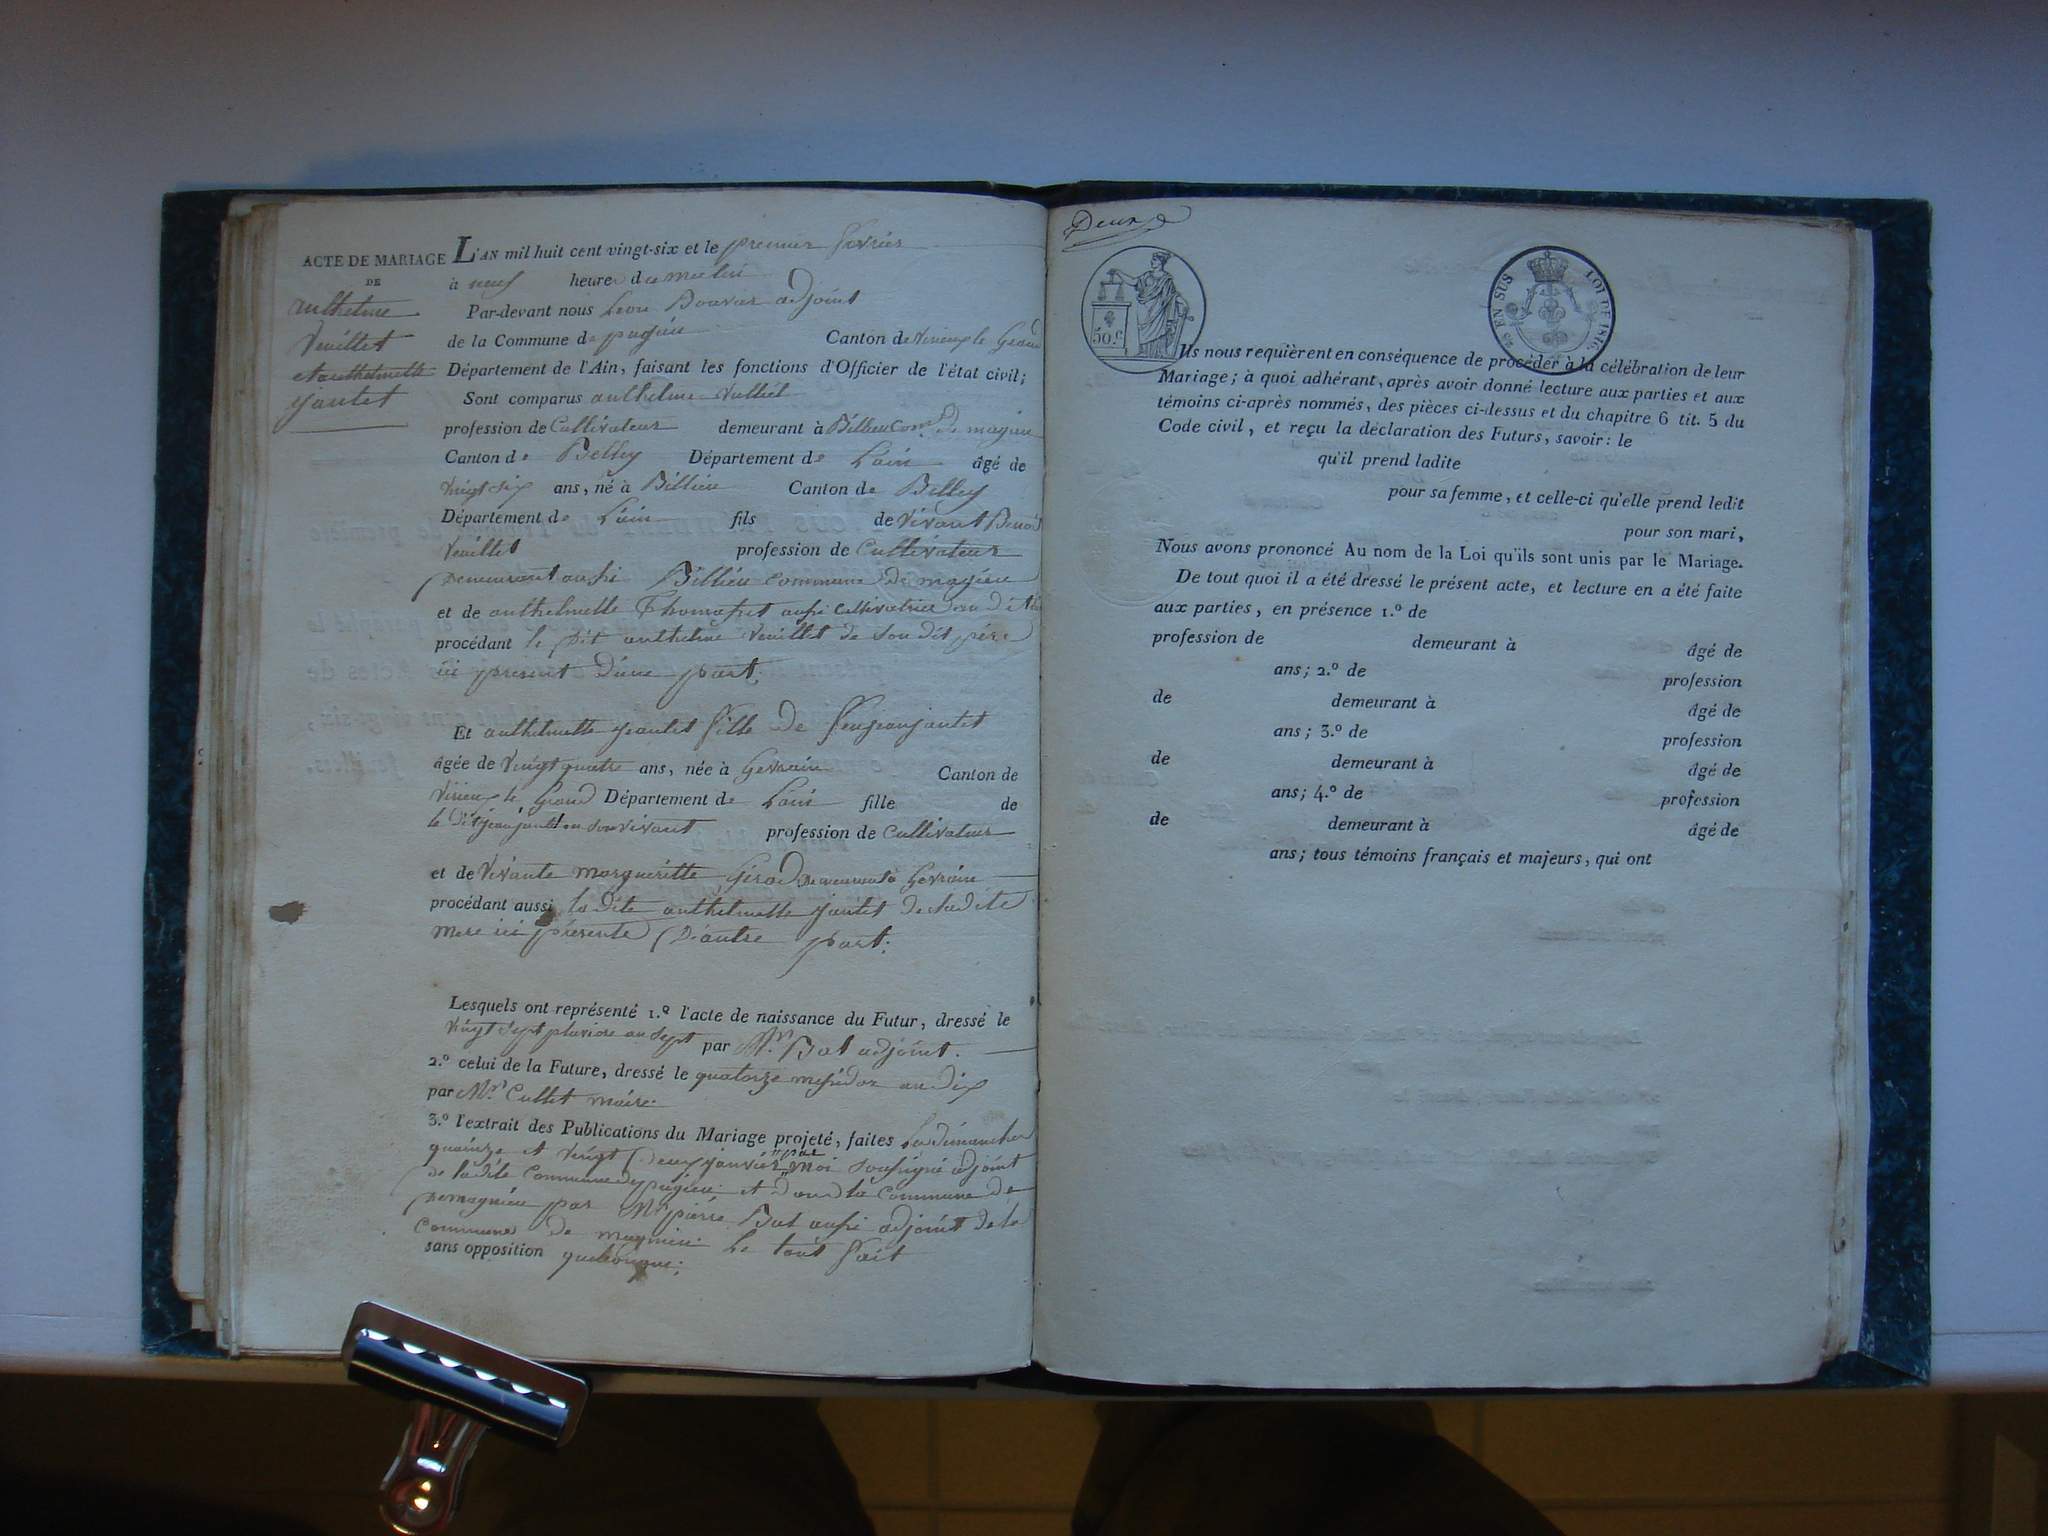 ACTE DE MARIAGE
DE
anthelme
Veuillet
et anthelmette
jantet
L'AN mil huit cent vingt-six et le premier fevrier
à neuf heures du matin
Par-devant nous Bouvier adjoint
de la Commune de pugieu Canton de Virieux le Grand
Département de l'Ain, faisant les fonctions d'Officier de l'état civil;
Sont comparus anthelme Vulliet
profession de Cultivateur demeurant à Billieu Com.ne de magnieu
Canton de Belley Département de L'ain âgé de
Vingt six ans, né à Billieu Canton de Belley
Département de L'ain fils de Vivant Benoit
Veuillet profession de Cultivateur
Demeurant aussi Billieu commune De magnieu
et de anthelmette Thomasset aussi cultivatrice au dit
procédant le Dit anthelme Veuillet de Son dit père
ici present D'une part;
Et anthelmette jantet fille De feu jean jantet
âgée de Vingt quatre ans, née à Gevrain Canton de
Virieux le Grand Département de L'ain fille de
le Dit jean jantet en son vivant profession de Cultivateur
et de Vivante Margueritte Girod Demeurant à Gevrain
procédant aussi la Dite anthelmette jantet de sa dite
Mere ici présente D'autre part;
Lesquels ont représenté 1.º l'acte de naissance du Futur, dressé le
Vingt Sept pluviose an Sept par Mr. Bat adjoint.
2.º celui de la Future, dressé le quatorze messidor an dix
par Mr. Cullet maire.
3.º l'extrait des Publications du Mariage projeté, faites Les dimanches
quinze et Vingt Deux janvier par moi soussigné adjoint
de la dite Commune de pugieu et dans la Commune de
De magnieu par Mr pierre Bat aussi adjoint de la
Commune de magnieu. Le tout fait
sans opposition quelconque;
Deux
50.c
25 EN SUS
LOI DE 1816.
Ils nous requièrent en conséquence de procéder à la célébration de leur
Mariage; à quoi adhérant, après avoir donné lecture aux parties et aux
témoins ci-après nommés, des pièces ci-dessus et du chapitre 6 tit. 5 du
Code civil, et reçu la déclaration des Futurs, savoir: le
qu'il prend ladite
pour sa femme, et celle-ci qu'elle prend ledit
pour son mari,
Nous avons prononcé Au nom de la Loi qu'ils sont unis par le Mariage.
De tout quoi il a été dressé le présent acte, et lecture en a été faite
aux parties, en présence 1.º de
profession de demeurant à âgé de
ans; 2.º de profession
de demeurant à âgé de
ans; 3.º de profession
de demeurant à âgé de
ans; 4.º de profession
de demeurant à âgé de
ans; tous témoins français et majeurs, qui ont